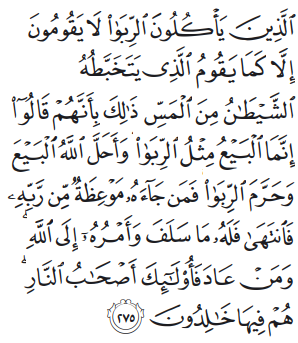 ٱلَّذِينَ يَأْكُلُونَ ٱلرِّبَوٰا۟ لَا يَقُومُونَ
إِلَّا كَمَا يَقُومُ ٱلَّذِى يَتَخَبَّطُهُ
ٱلشَّيْطَٰنُ مِنَ ٱلْمَسِّ ذَٰلِكَ بِأَنَّهُمْ قَالُوٓا۟
إِنَّمَا ٱلْبَيْعُ مِثْلُ ٱلرِّبَوٰا۟ وَأَحَلَّ ٱللَّهُ ٱلْبَيْعَ
وَحَرَّمَ ٱلرِّبَوٰا۟ فَمَن جَآءَهُۥ مَوْعِظَةٌ مِّن رَّبِّهِۦ
فَٱنتَهَىٰ فَلَهُۥ مَا سَلَفَ وَأَمْرُهُۥٓ إِلَى ٱللَّهِ ۖ
وَمَنْ عَادَ فَأُو۟لَٰٓئِكَ أَصْحَٰبُ ٱلنَّارِ ۖ
هُمْ فِيهَا خَٰلِدُونَ ٢٧٥